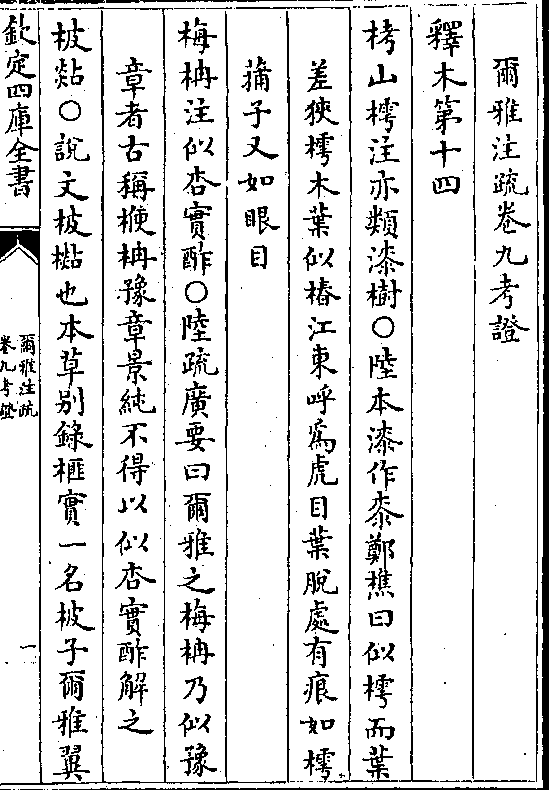 爾雅注疏卷九考證
釋木第十四
栲山樗注亦類漆樹○陸本漆作桼鄭樵曰似樗而葉
差狹樗木葉似椿江東呼為虎目葉脫處有痕如樗
蒱子又如眼目
梅柟注似杏實酢○陸疏廣要曰爾雅之梅柟乃似豫
章者古稱楩柟豫章景純不得以似杏實酢解之
柀煔○說文柀㯳也本草別錄榧實一名柀子爾雅翼
欽定四庫全書
爾雅注疏
卷九考證
一